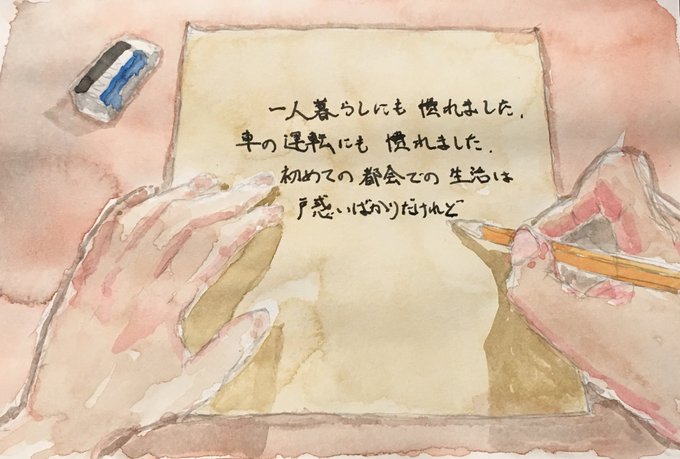 一人暮らしにも 慣れました.
車の運転にも 慣れました.
初めての 都会での 生活は
戸惑いばかりだけれど